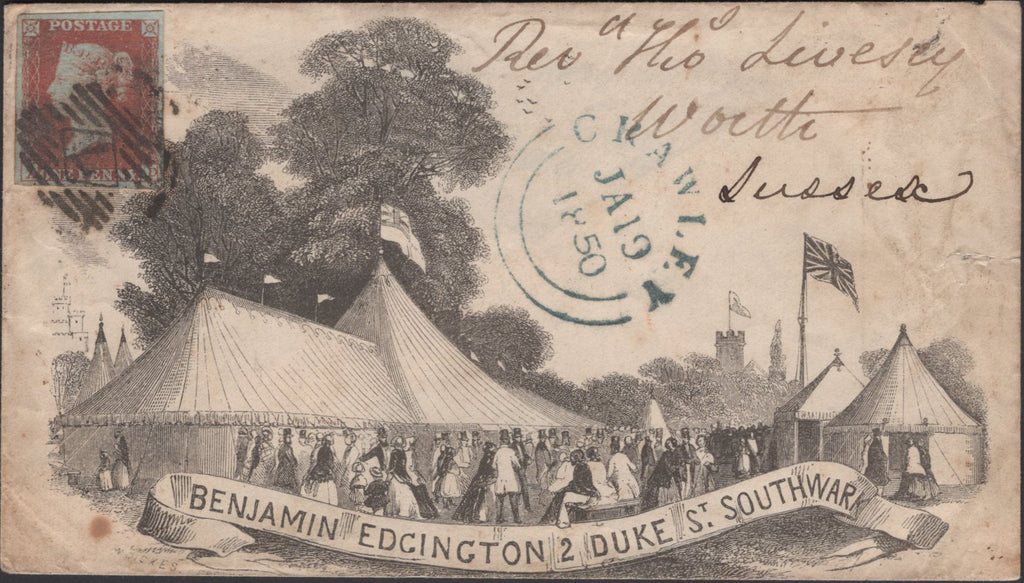 POSTAGE
Revd Thos Livesey
Worth
Sussex
CRAWLEY
JA 19
1850
BENJAMIN EDGINGTON 2 DUKE ST. SOUTHWARK